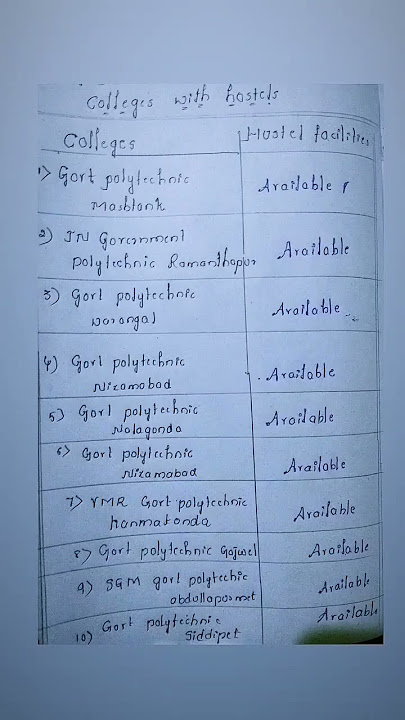 Colleges with hostels
Colleges
Hostel facilities
1) Govt polytechnic
Masbtank
Available
2) JN Government
polytechnic Ramanthapur
Available
3) Govt polytechnic
Warangal
Available
4) Govt polytechnic
Nizamabad
Available
5) Govt polytechnic
Nalagonda
Available
6) Govt polytechnic
Nizamabad
Available
7) VMR Govt polytechnic
Hanmakonda
Available
8) Govt polytechnic Gajwel
Available
9) SGM govt polytechic
abdullapurmet
Available
10) Govt polytechnic
Siddipet
Available